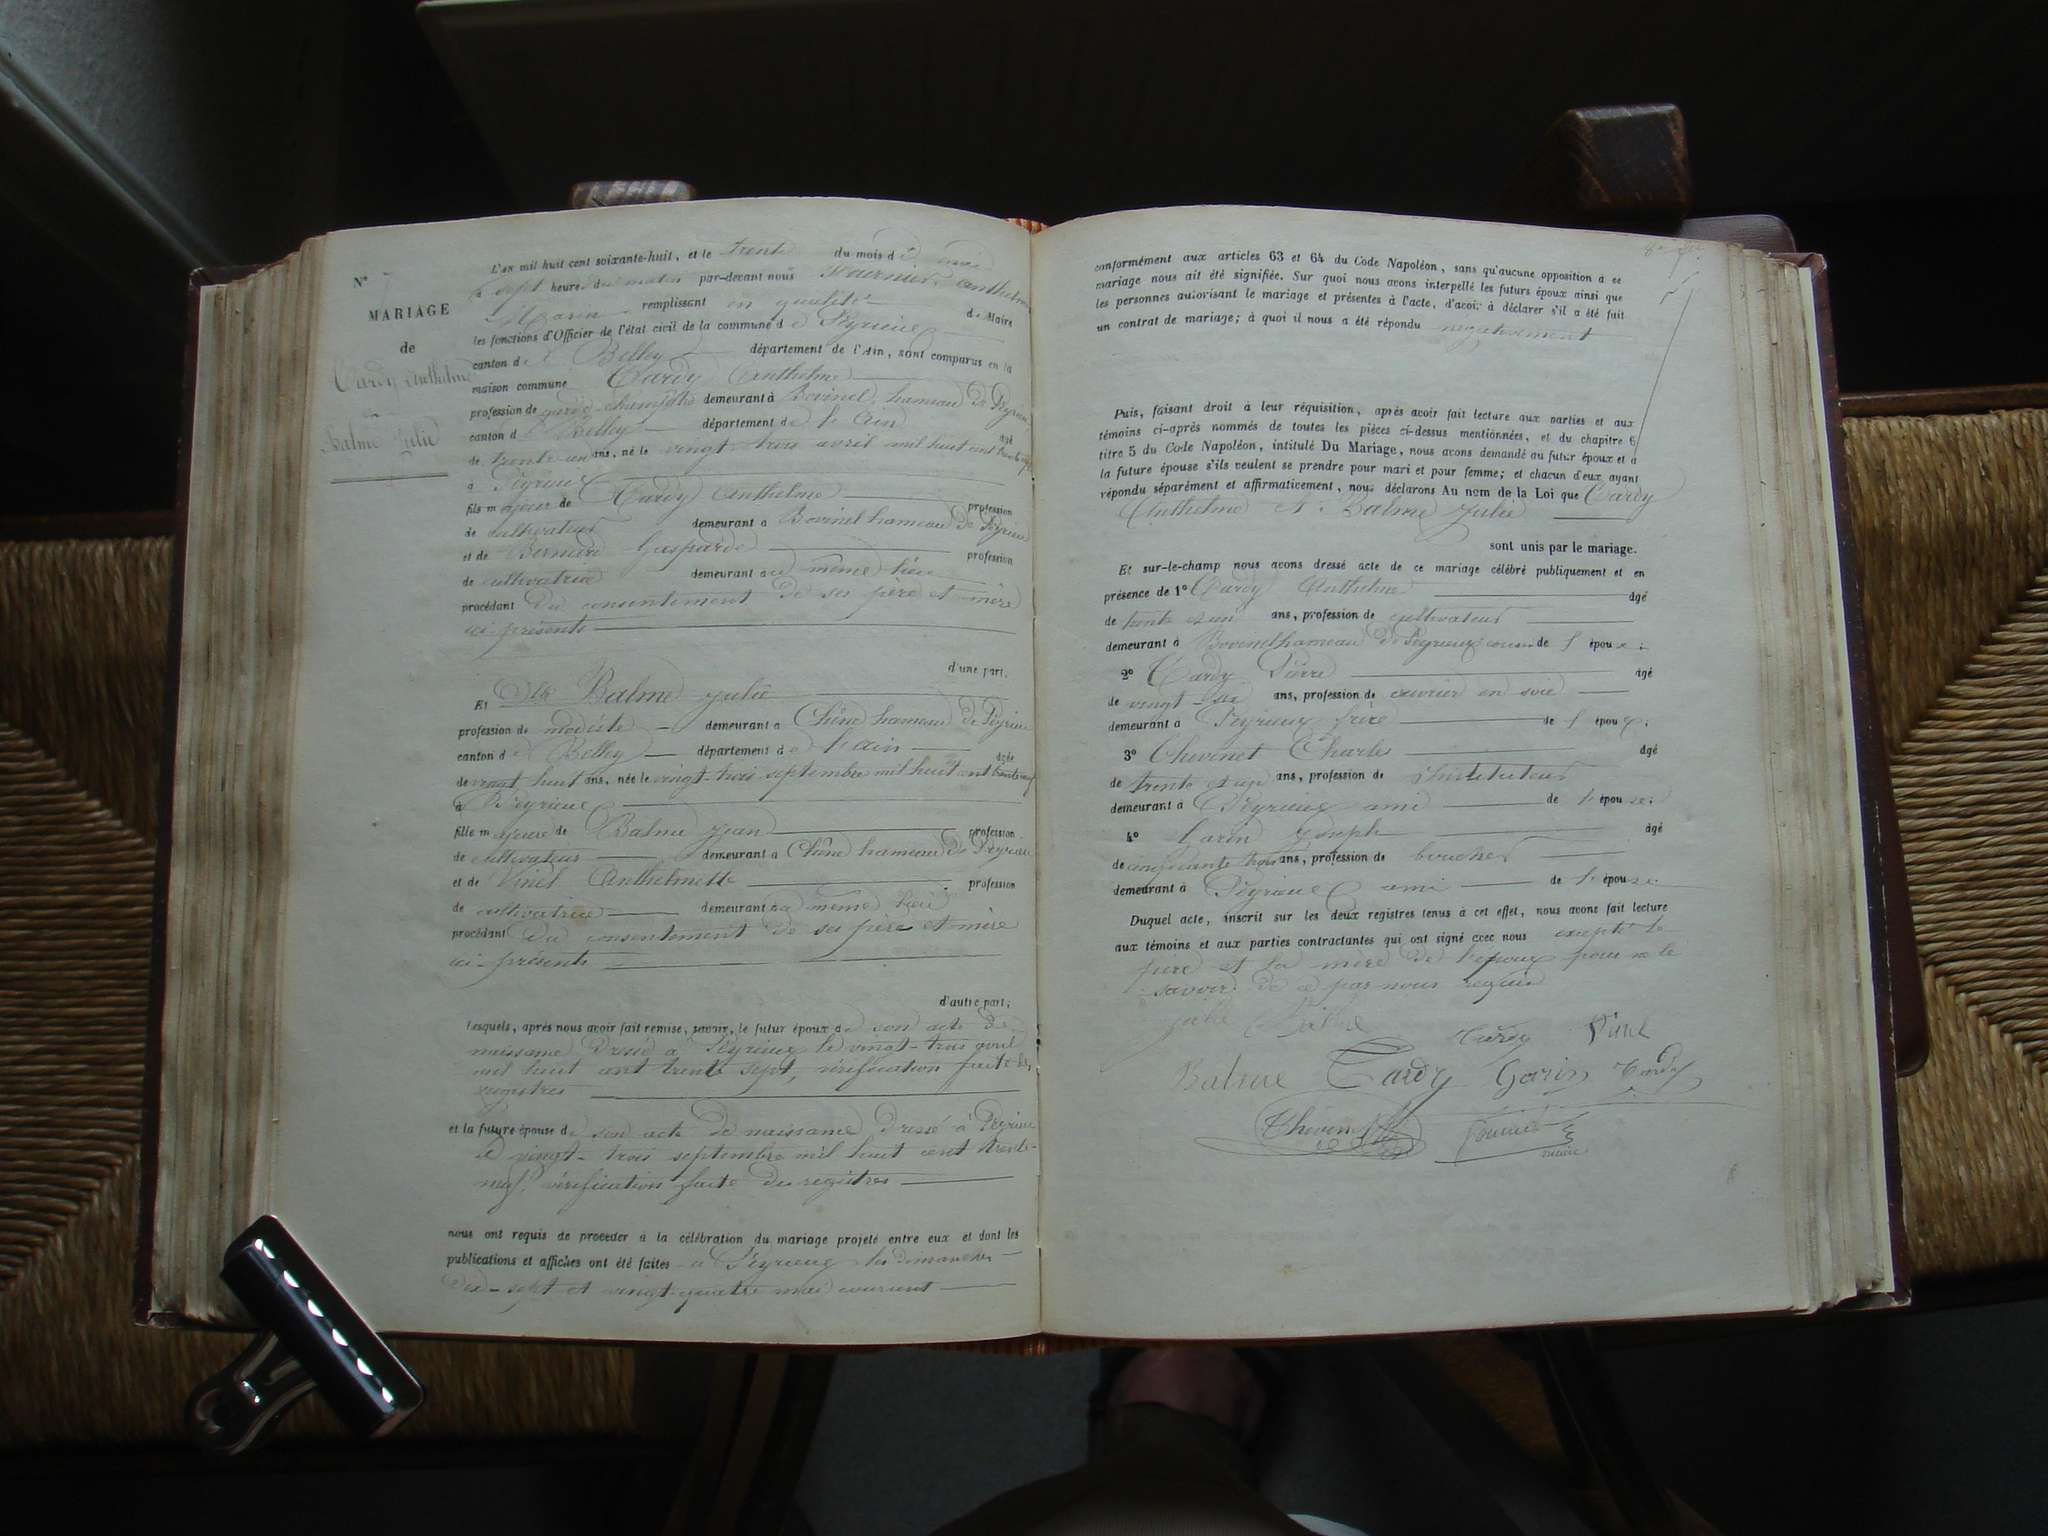 N°
MARIAGE
de
Cardy Anthelme
et
Balme Julie
L'an mil huit cent soixante-huit, et le trente du mois de mai
à sept heures du matin par-devant nous Fournier Anthelme
Maire remplissant en qualité de Maire
les fonctions d'Officier de l'état civil de la commune de Peyrieu
canton de Belley département de l'Ain, sont comparus en la
maison commune Cardy Anthelme
profession de garde-champêtre demeurant à Bovinel, hameau de Peyrieu
canton de Belley département de l'Ain âgé
de trente-un ans, né le vingt-trois avril mil huit cent trente sept
à Peyrieu
fils majeur de Cardy Anthelme profession
de cultivateur demeurant à Bovinel hameau de Peyrieu
et de Gasparde profession
de cultivatrice demeurant au même lieu
procédant du consentement de ses père et mère
ici présents
d'une part.
Et Dlle Balme Julie
profession de modiste demeurant à Chêne hameau de Peyrieu
canton de Belley département de l'Ain âgée
de vingt huit ans, née le vingt-trois septembre mil huit cent trente neuf
à Peyrieu
fille majeure de Balme Jean profession
de cultivateur demeurant à Chêne hameau de Peyrieu
et de Vinel Anthelmette profession
de cultivatrice demeurant au même lieu
procédant du consentement de ses père et mère
ici présents
d'autre part;
Lesquels, après nous avoir fait remise, savoir, le futur époux de son acte de
naissance dressé à Peyrieu le vingt-trois avril
mil huit cent trente sept, vérification faite des
registres
et la future épouse de son acte de naissance dressé à Peyrieu
le vingt-trois septembre mil huit cent trente-
neuf, vérification faite des registres
nous ont requis de procéder à la célébration du mariage projeté entre eux et dont les
publications et affiches ont été faites à Peyrieu les dimanches
dix-sept et vingt-quatre mai courant
conformément aux articles 63 et 64 du Code Napoléon, sans qu'aucune opposition à ce
mariage nous ait été signifiée. Sur quoi nous avons interpellé les futurs époux ainsi que
les personnes autorisant le mariage et présentes à l'acte, d'avoir à déclarer s'il a été fait
un contrat de mariage; à quoi il nous a été répondu négativement
Puis, faisant droit à leur réquisition, après avoir fait lecture aux parties et aux
témoins ci-après nommés de toutes les pièces ci-dessus mentionnées, et du chapitre 6
titre 5 du Code Napoléon, intitulé Du Mariage, nous avons demandé au futur époux et à
la future épouse s'ils veulent se prendre pour mari et pour femme; et chacun d'eux ayant
répondu séparément et affirmativement, nous déclarons Au nom de la Loi que Cardy
Anthelme et Balme Julie
sont unis par le mariage.
Et sur-le-champ nous avons dressé acte de ce mariage célébré publiquement et en
présence de 1° Cardy Anthelme âgé
de trente et un ans, profession de cultivateur
demeurant à Bovinel hameau de Peyrieu cousin de l'époux;
2° Cardy Pierre âgé
de vingt-six ans, profession de ouvrier en soie
demeurant à Peyrieu frère de l'époux;
3° Thevenet Charles âgé
de trente et un ans, profession de instituteur
demeurant à Peyrieu ami de l'épouse;
4° Garin Joseph âgé
de cinquante trois ans, profession de boucher
demeurant à Peyrieu ami de l'épouse.
Duquel acte, inscrit sur les deux registres tenus à cet effet, nous avons fait lecture
aux témoins et aux parties contractantes qui ont signé avec nous excepté le
père et la mère de l'époux pour ne le
savoir de ce par nous requis
Julie Balme Cardy Vinel
Balme Cardy Garin Cardy
Thévenet Fournier
maire